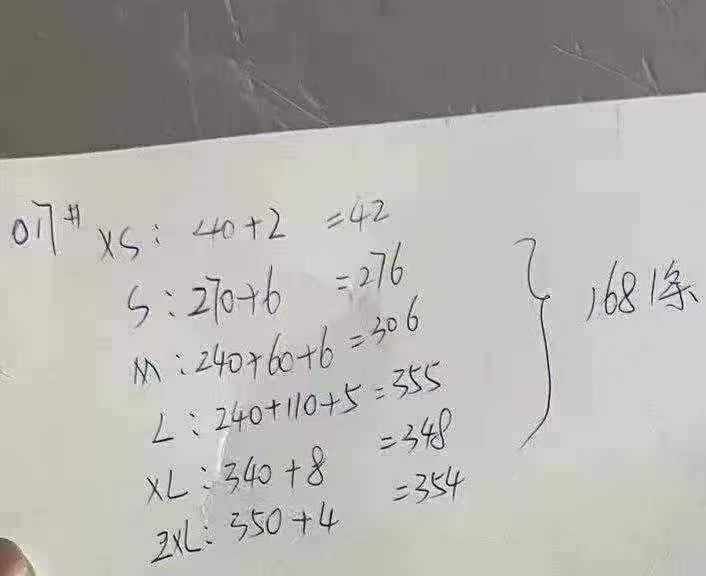 017# XS: 40+2 =42
S: 270+6 =276
M: 240+60+6 =306
L: 240+110+5 =355
XL: 340+8 =348
2XL: 350+4 =354
1681条